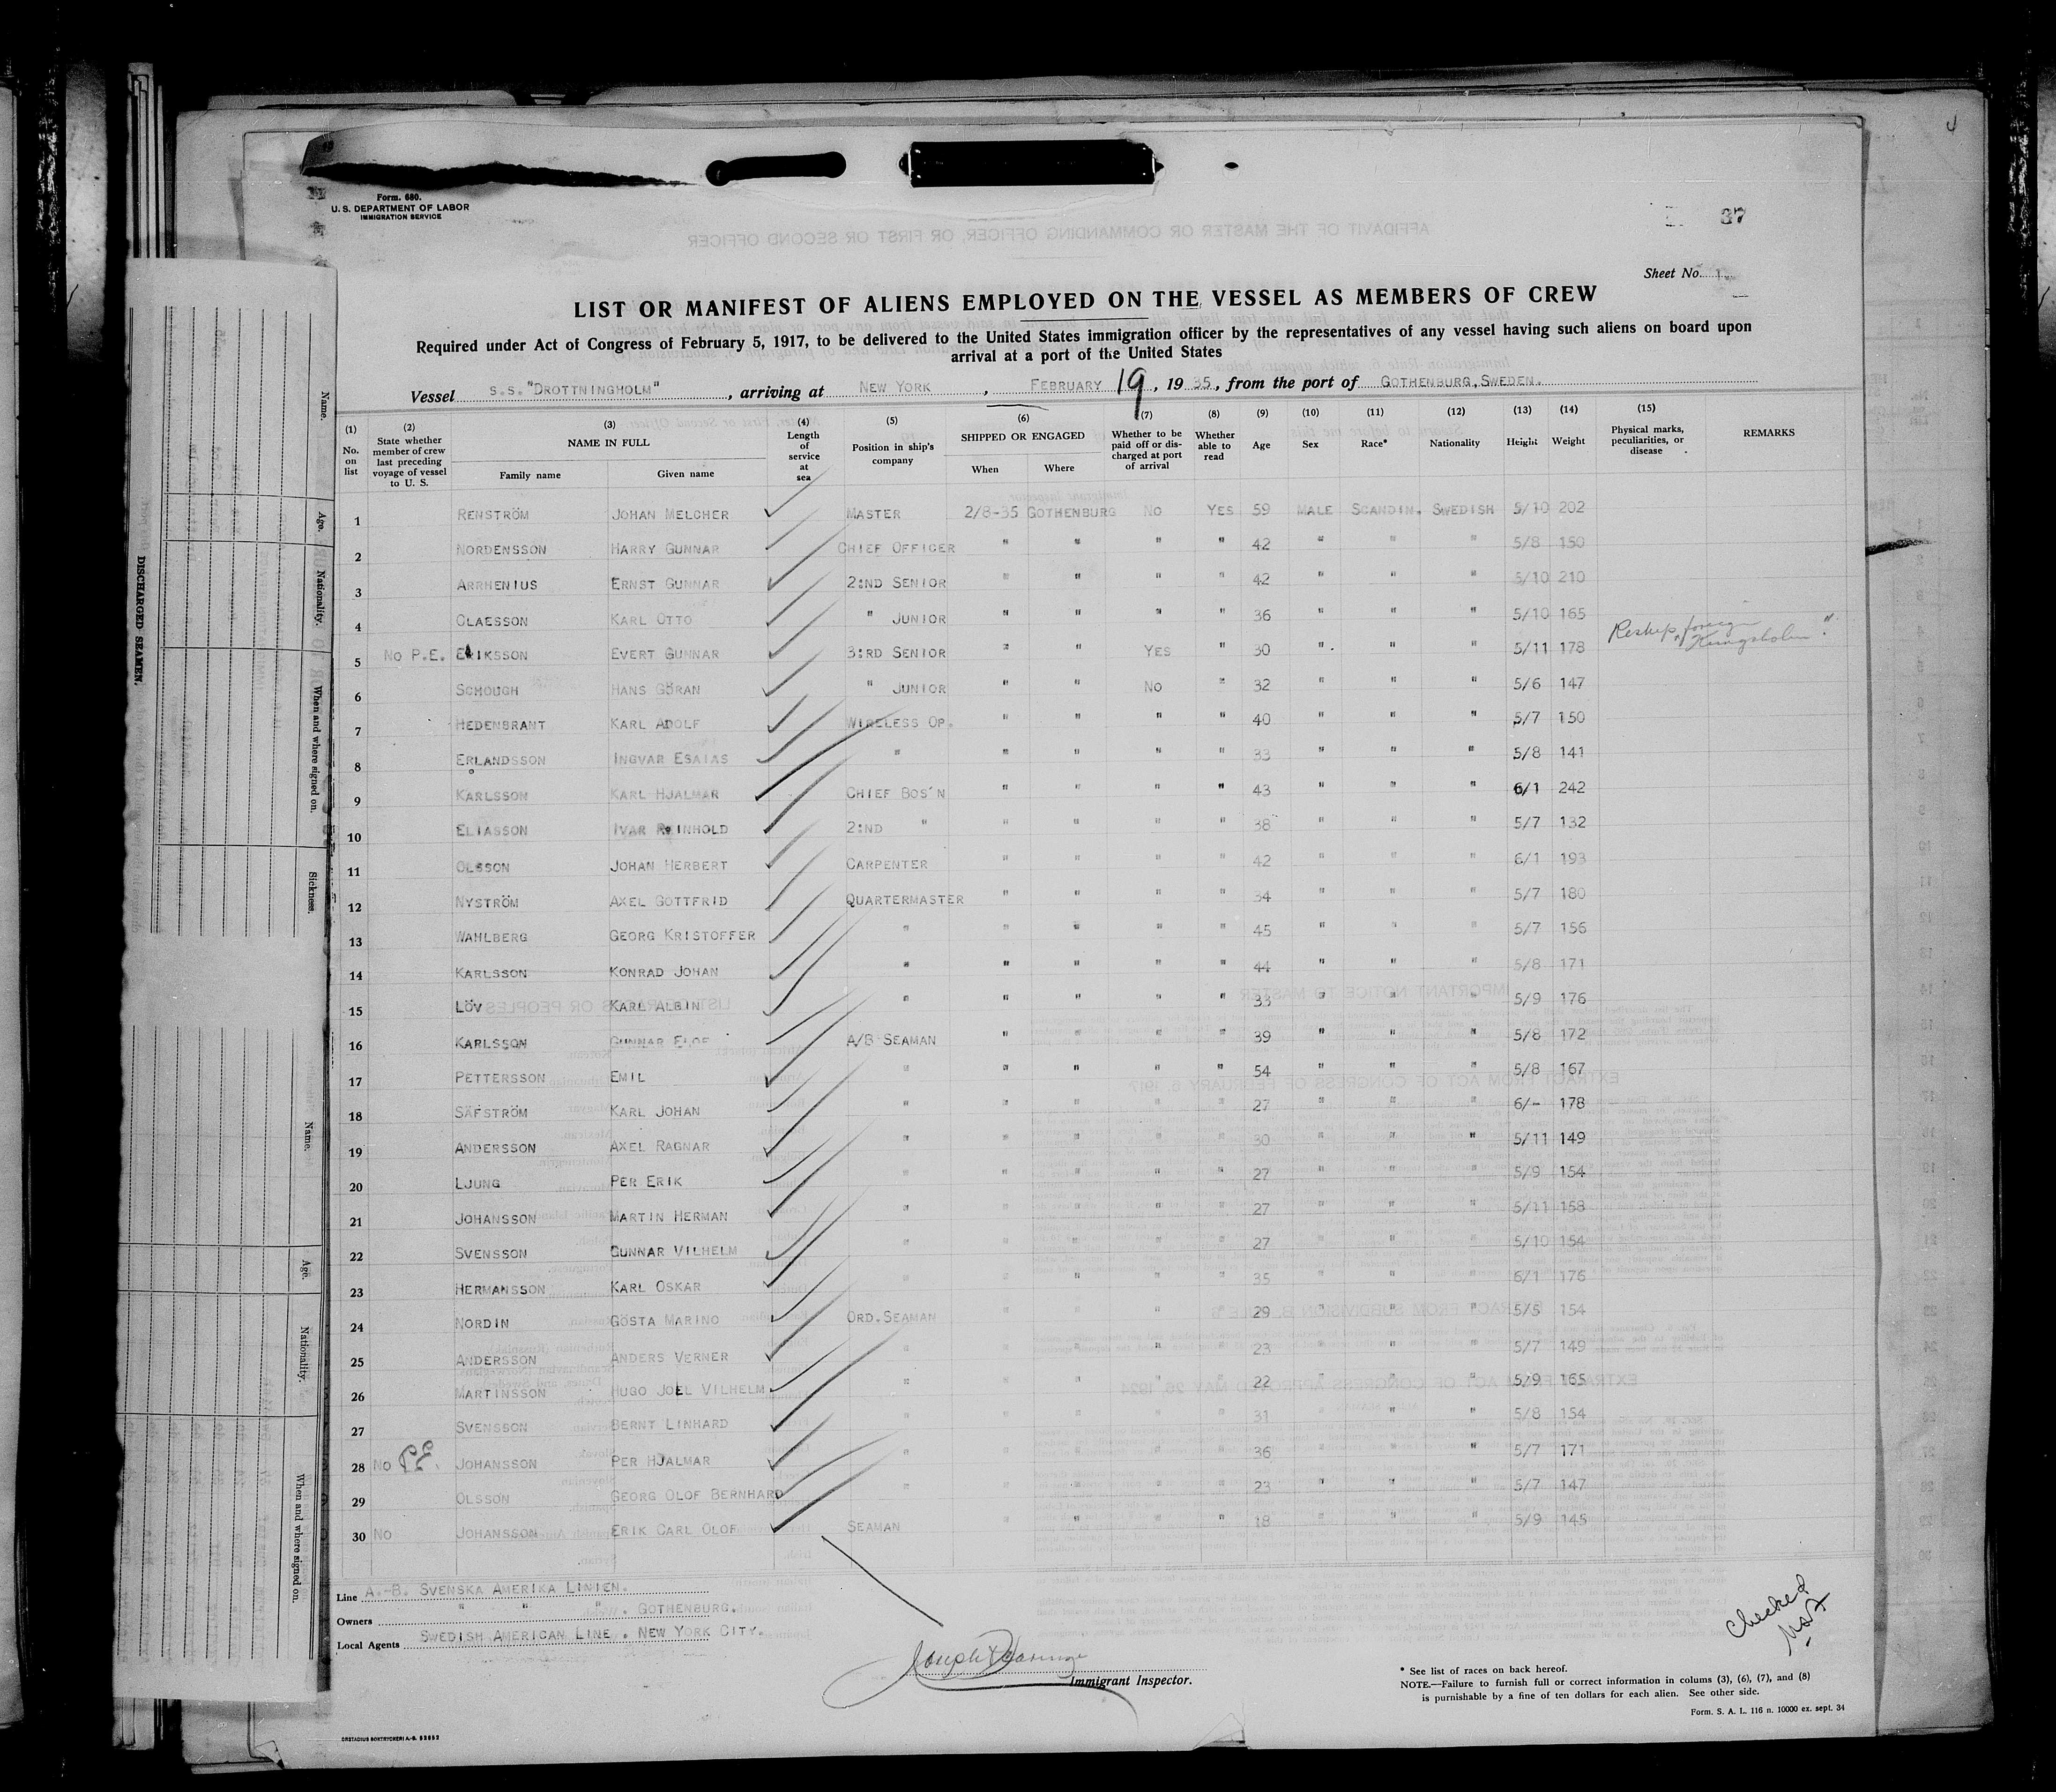 4
Form. 680.
U. S. DEPARTMENT OF LABOR
IMMIGRATION SERVICE
37
Sheet No. 1
LIST OR MANIFEST OF ALIENS EMPLOYED ON THE VESSEL AS MEMBERS OF CREW
Required under Act of Congress of February 5, 1917, to be delivered to the United States immigration officer by the representatives of any vessel having such aliens on board upon
arrival at a port of the United States
Vessel S.S."DROTTNINGHOLM", arriving at NEW YORK, FEBRUARY 19, 1935, from the port of GOTHENBURG, SWEDEN.
(1) No. on list (2) State whether member of crew last preceding voyage of vessel to U. S. (3) NAME IN FULL Family name Given name (4) Length of service at sea (5) Position in ship's company (6) SHIPPED OR ENGAGED When Where (7) Whether to be paid off or discharged at port of arrival (8) Whether able to read (9) Age (10) Sex (11) Race* (12) Nationality (13) Height (14) Weight (15) Physical marks, peculiarities, or disease REMARKS
1 RENSTRÖM JOHAN MELCHER MASTER 2/8-35 GOTHENBURG NO YES 59 MALE SCANDIN. SWEDISH 5/10 202
2 NORDENSSON HARRY GUNNAR CHIEF OFFICER " " " " 42 " " " 5/8 150
3 ARRHENIUS ERNST GUNNAR 2:ND SENIOR " " " " 42 " " " 5/10 210
4 CLAESSON KARL OTTO " JUNIOR " " " " 36 " " " 5/10 165
5 NO P.E. ERIKSSON EVERT GUNNAR 3:RD SENIOR " " YES " 30 " " " 5/11 178 Reship foreign "Kungsholm".
6 SCHOUGH HANS GÖRAN " JUNIOR " " NO " 32 " " " 5/6 147
7 HEDENBRANT KARL ADOLF WIRELESS OP. " " " " 40 " " " 5/7 150
8 ERLANDSSON INGVAR ESAIAS " " " " " 33 " " " 5/8 141
9 KARLSSON KARL HJALMAR CHIEF BOS'N " " " " 43 " " " 6/1 242
10 ELIASSON IVAR REINHOLD 2:ND " " " " " 38 " " " 5/7 132
11 OLSSON JOHAN HERBERT CARPENTER " " " " 42 " " " 6/1 193
12 NYSTRÖM AXEL GOTTFRID QUARTERMASTER " " " " 34 " " " 5/7 180
13 WAHLBERG GEORG KRISTOFFER " " " " " 45 " " " 5/7 156
14 KARLSSON KONRAD JOHAN " " " " " 44 " " " 5/8 171
15 LÖV KARL ALBIN " " " " " 33 " " " 5/9 176
16 KARLSSON GUNNAR ELOF A/B SEAMAN " " " " 39 " " " 5/8 172
17 PETTERSSON EMIL " " " " " 54 " " " 5/8 167
18 SÄFSTRÖM KARL JOHAN " " " " " 27 " " " 6/- 178
19 ANDERSSON AXEL RAGNAR " " " " " 30 " " " 5/11 149
20 LJUNG PER ERIK " " " " " 27 " " " 5/9 154
21 JOHANSSON MARTIN HERMAN " " " " " 27 " " " 5/11 158
22 SVENSSON GUNNAR VILHELM " " " " " 27 " " " 5/10 154
23 HERMANSSON KARL OSKAR " " " " " 35 " " " 6/1 176
24 NORDIN GÖSTA MARINO ORD.SEAMAN " " " " 29 " " " 5/5 154
25 ANDERSSON ANDERS VERNER " " " " " 23 " " " 5/7 149
26 MARTINSSON HUGO JOEL VILHELM " " " " " 22 " " " 5/9 165
27 SVENSSON BERNT LINHARD " " " " " 31 " " " 5/8 154
28 NO P.E. JOHANSSON PER HJALMAR " " " " " 36 " " " 5/7 171
29 OLSSON GEORG OLOF BERNHARD " " " " " 23 " " " 5/7 147
30 NO JOHANSSON ERIK CARL OLOF SEAMAN " " " " 18 " " " 5/9 145
Line A.-B. SVENSKA AMERIKA LINIEN.
Owners " " ". GOTHENBURG.
Local Agents SWEDISH AMERICAN LINE. NEW YORK CITY.
Immigrant Inspector.
Checked
* See list of races on back hereof.
NOTE.—Failure to furnish full or correct information in colums (3), (6), (7), and (8)
is purnishable by a fine of ten dollars for each alien. See other side.
Form. S. A. L. 116 n. 10000 ex. sept. 34
DISCHARGED SEAMEN.
Name. Age. Nationality. When and where signed on. Sickness.
Name. Age. Nationality. When and where signed on.